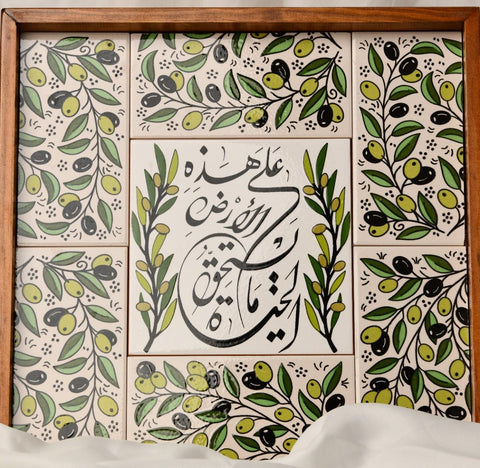 على هَذِهِ
الأَرْضِ
ما يستحق
الحياة